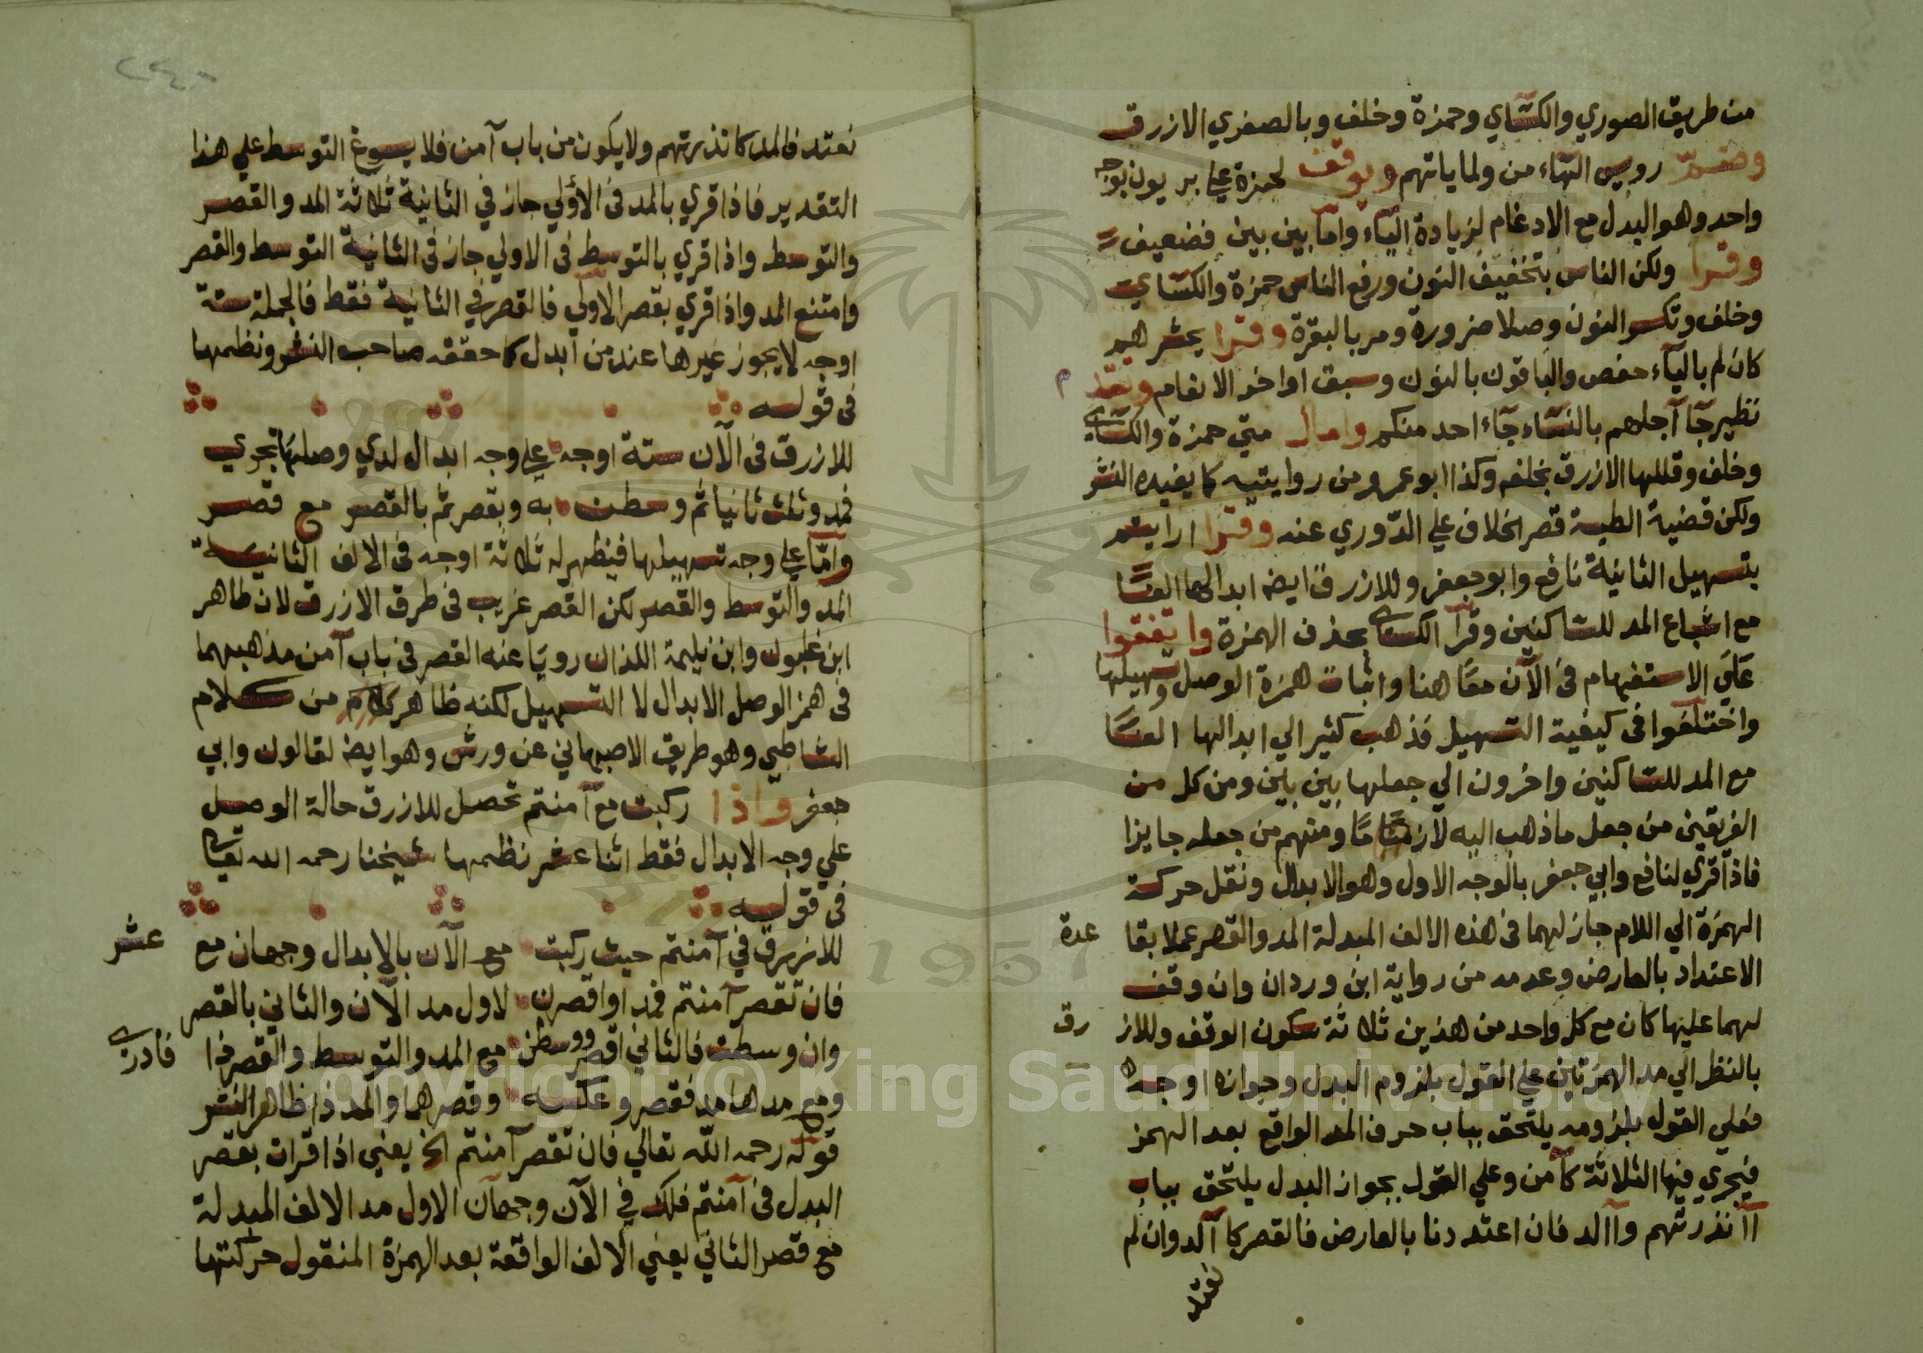 من طريق الصوري والكسآي وحمزة وخلف وبالصغري الازرق
وضم رويس الهاء من ولما ياتهم ويوقف لحمزة علي بريون بوجه
واحد وهو البدل مع الادغام لزيادة الياء واما بين بين فضعيف
وقرا ولكن الناس بتخفيف النون ورفع الناس حمزة والكسآي
وخلف وتكسر النون وصلا ضرورة ومر بالبقرة وقرا يحشرهم
كان لم بالياء حفص والباقون بالنون وسبق اواخر الانعام وتقدم
نظير جآ آجلهم بالنسآء جآء احد منكم وامال متي حمزة والكسآي
وخلف وقللها الازرق بخلفه وكذا ابو عمرو من روايتيه كما يفيده النشر
ولكن قضية الطيبة قصر الخلاف علي الدوري عنه وقرا ارايتم
بتسهيل الثانية نافع وابو جعفر وللازرق ايضا ابدالها الفا
مع اشباع المد للساكنين وقرآ الكسآي بحذف الهمزة واتفقوا
علي الاستفهام في الآن معا هنا واثبات همزة الوصل وتسهيلها
واختلفوا في كيفية التسهيل فذهب كثير الي ابدالها الفا
مع المد للساكنين واخرون الي جعلها بين بين ومن كل من
الفريقين من جعل ماذهب اليه لازما ومنهم من جعله جايزا
فاذا قري لنافع وابي جعفر بالوجه الاول وهو الابدال ونقل حركة
الهمزة الي اللام جاز لهما في هذه الالف المبدلة المد والقصر عملا بقاعدة
الاعتداد بالعارض وعدمه من رواية ابن وردان وان وقف
لهما عليها كان مع كل واحد من هذين ثلاثة سكون الوقف وللازرق
بالنظر الي مد الهمزتين علي القول بلزوم البدل وجوازه اوجه
فعلي القول بلزومه يلتحق بباب حرف المد الواقع بعد الهمز
فيجري فيها الثلاثة كآمن وعلي القول بجواز البدل يلتحق بباب
آانذرتهم وآالد فان اعتددنا بالعارض فالقصر كا آلد وان لم
نعتد
نعتد فالمد كانذرتهم ولايكون من باب آمن فلا يسوغ التوسط علي هذا
التقدير فاذا قري بالمد في الاولي جاز في الثانية ثلاثة المد والقصر
والتوسط واذا قري بالتوسط في الاولي جاز في الثانية التوسط والقصر
وامتنع المد واذا قري بقصر الاولي فالقصر في الثانية فقط فالجملة ستة
اوجه لا يجوز غيرها عند من ابدل كما حققه صاحب النشر ونظمها
في قوله
للازرق في الآن ستة اوجه علي وجه ابدال لدي وصلها تجري
فمد وثلث ثانيا ثم وسطن به وبقصر ثم بالقصر مع قصر
واما علي وجه تسهيلها فيظهر له ثلاثة اوجه في الالف الثانية
المد والتوسط والقصر لكن القصر غريب في طرق الازرق لان طاهر
ابن غلبون وابن بليمة اللذان رويا عنه القصر في باب آمن مذهبهما
في همز الوصل الابدال لا التسهيل لكنه ظاهر من كلام
الشاطبي وهو طريق الاصبهاني عن ورش وهو ايضا لقالون وابي
جعفر واذا ركبت مع آمنتم تحصل للازرق حالة الوصل
علي وجه الابدال فقط اثنا عشر نظمها شيخنا رحمه الله تعالي
في قوله
للازرق في آمنتم حيث ركبت مع الآن بالابدال وجهان مع عشر
فان تقصر آمنتم فمد او اقصرن لاول مد الآن والثاني بالقصر
وان وسطت فالثاني اقصر ووسطن مع المد والتوسط والقصر ذا فادري
ومع مدها مد فقصر وعكسه وقصرهما والمد ذا ظاهر النشر
قوله رحمه الله تعالي فان تقصر آمنتم الخ يعني اذا قرات بقصر
البدل في آمنتم فلك في الآن وجهان الاول مد الالف المبدلة
مع قصر الثاني يعني الالف الواقعة بعد الهمزة المنقول حركتها
1957
Copyright © King Saud University